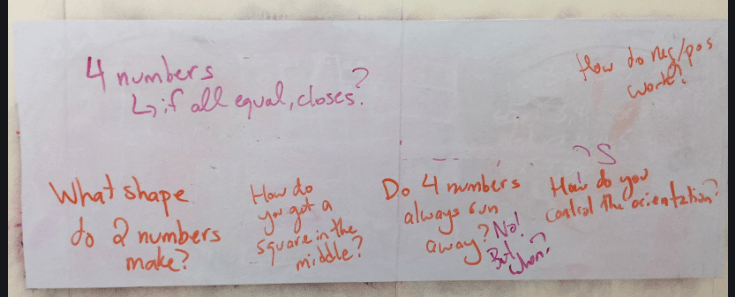 4 numbers
↳ if all equal, closes?
How do neg/pos
work?
What shape
do 2 numbers
make?
How do
you get a
square in the
middle?
Do 4 numbers
always run
away? No!
But when?
?S
How do you
control the orientation?